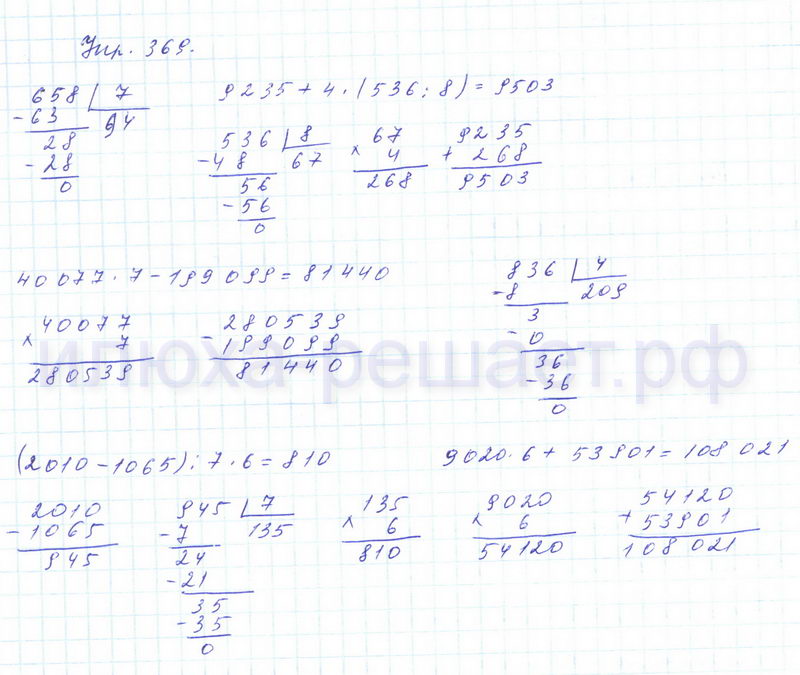 Упр. 369.
658 | 7
- 63
94
28
- 28
0
9235 + 4 · (536 : 8) = 9503
536 | 8
- 48
67
56
- 56
0
67
× 4
268
9235
+ 268
9503
40077 · 7 - 199 099 = 81440
40077
× 7
280539
- 280539
199099
81440
836 | 4
- 8
209
3
- 0
36
- 36
0
илюха-решает.рф
(2010 - 1065) : 7 · 6 = 810
2010
- 1065
945
945 | 7
- 7
135
24
- 21
35
- 35
0
135
× 6
810
9020 · 6 + 53901 = 108 021
9020
× 6
54120
54120
+ 53901
108 021